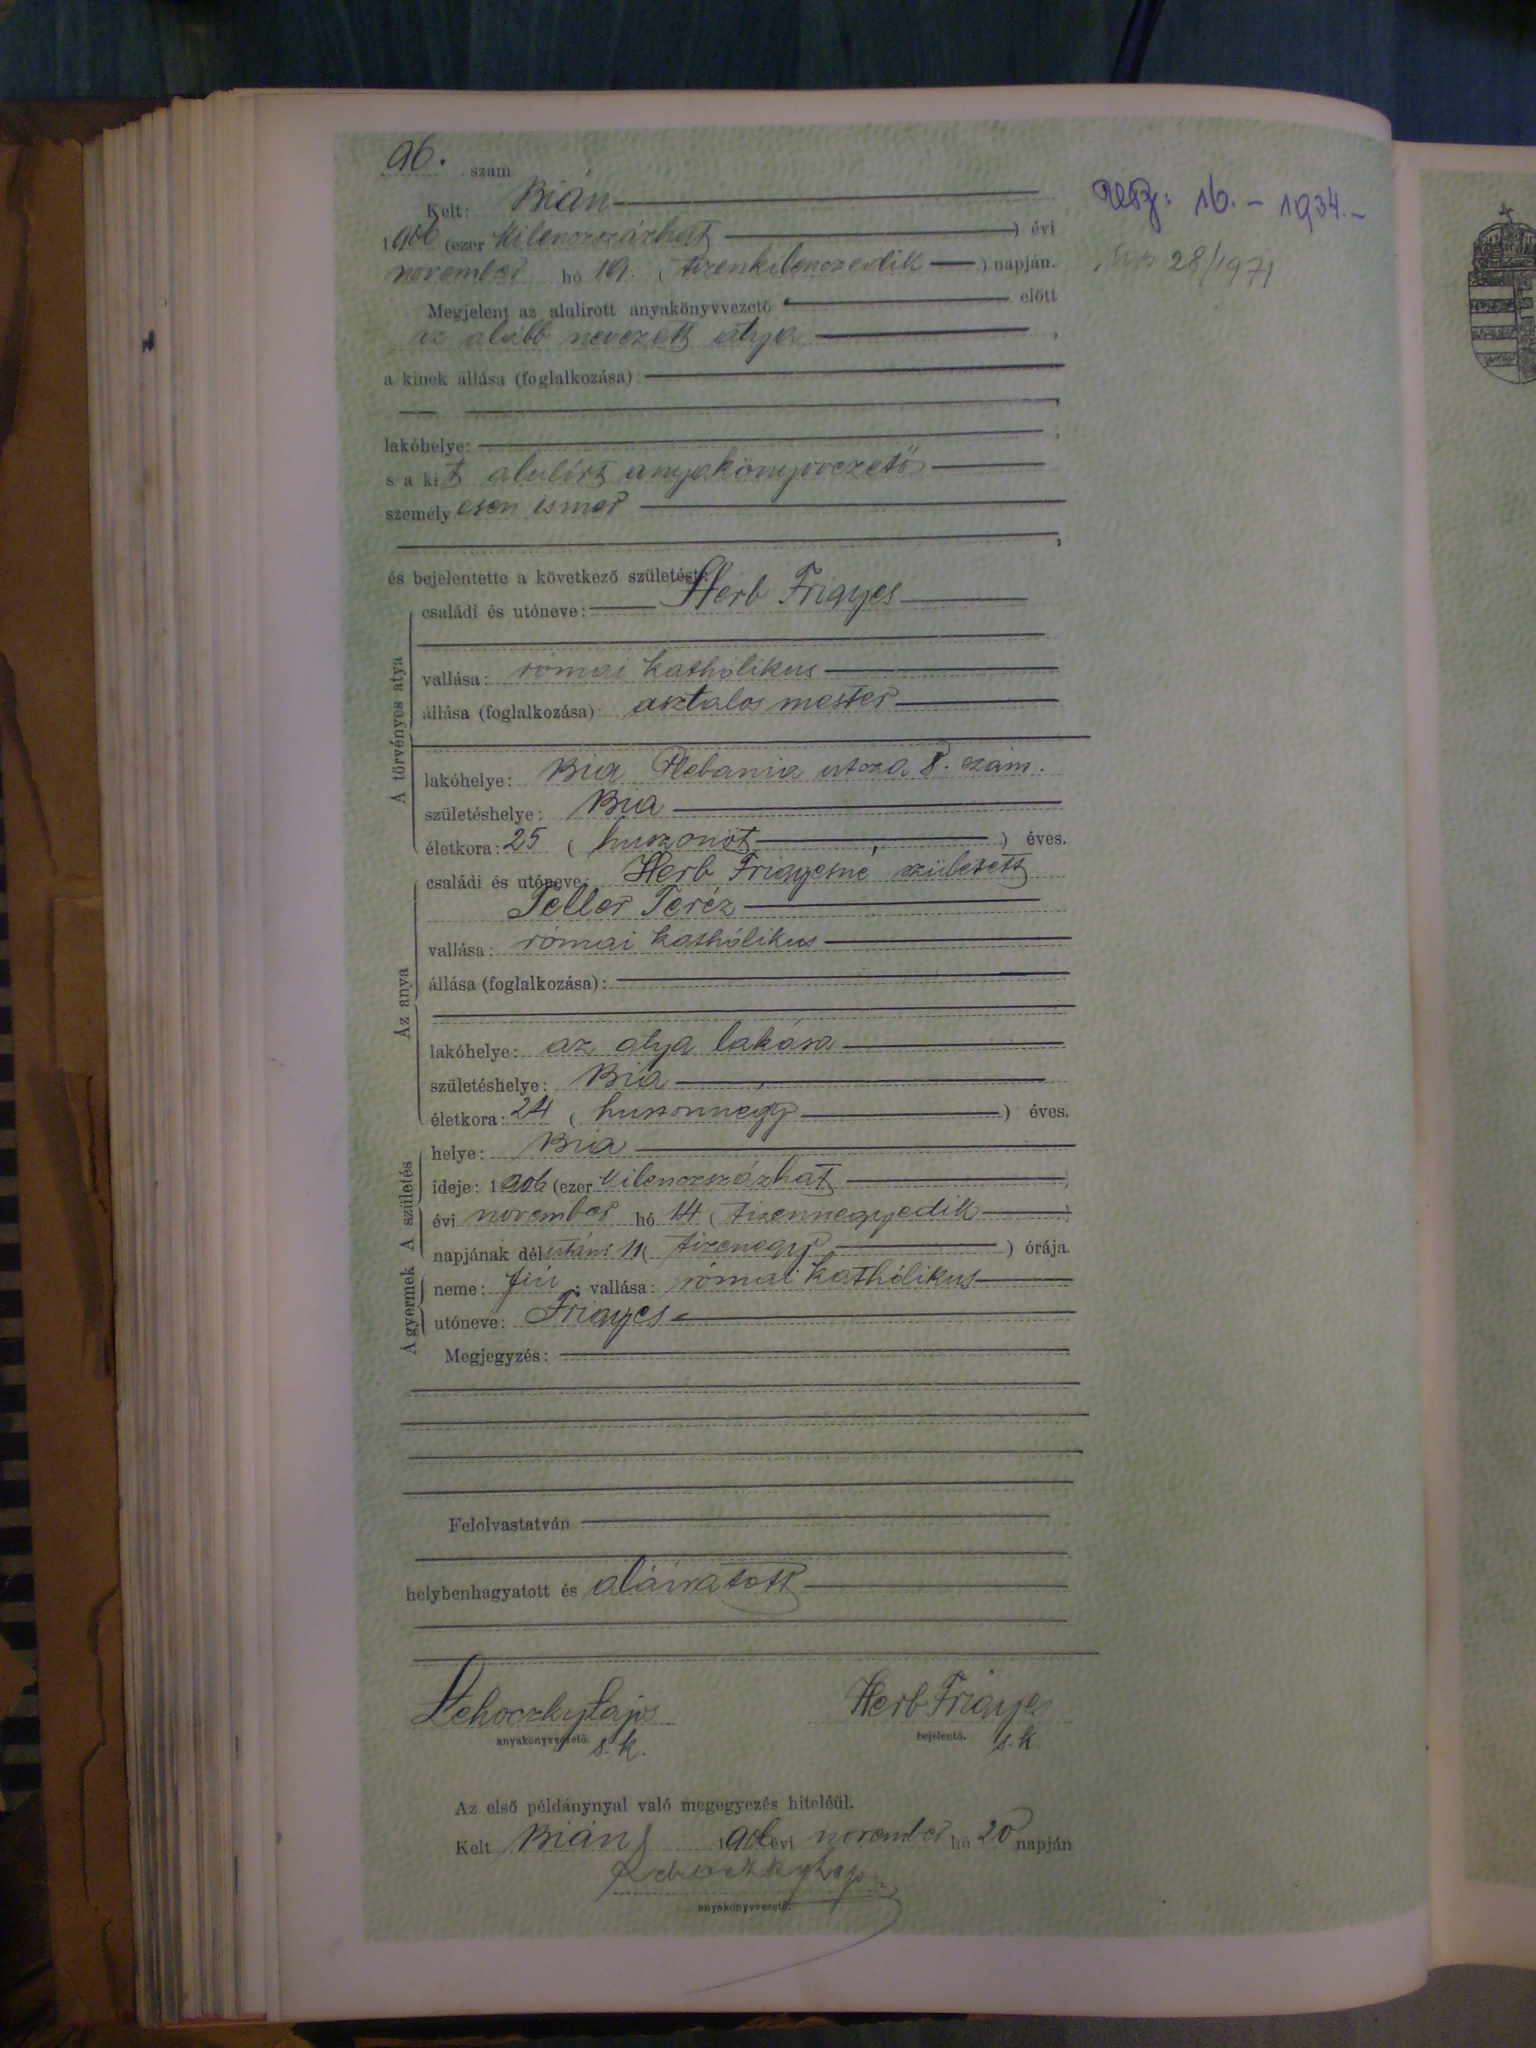 96. szám
Kelt: Bián
1906 (ezer kilenczszázhat) évi
november hó 19. (tizenkilenczedik) napján.
Megjelent az alulirott anyakönyvvezető előtt
az alább nevezett atya,
a kinek állása (foglalkozása):
lakóhelye: ;
s a kit alulírt anyakönyvvezető
személyesen ismer
és bejelentette a következő születést:
A törvényes atya
családi és utóneve: Herb Frigyes
vallása: római katholikus
állása (foglalkozása): asztalos mester
lakóhelye: Bia Plebania utcza 8. szám.
születéshelye: Bia
életkora: 25 (huszonöt) éves.
Az anya
családi és utóneve: Herb Frigyesné született
Teller Teréz
vallása: római katholikus
állása (foglalkozása):
lakóhelye: az atya lakása
születéshelye: Bia
életkora: 24 (huszonnégy) éves.
A születés
helye: Bia
ideje: 1906 (ezer kilenczszázhat)
évi november hó 14 (tizennegyedik)
napjának délutáni 11 (tizenegy) órája.
A gyermek
neme: fiú; vallása: római katholikus
utóneve: Frigyes
Megjegyzés:
Felolvastatván
helybenhagyatott és aláiratott
Lehoczky Lajos Herb Frigyes
anyakönyvvezető. s. k. bejelentő. s. k.
Az első példánynyal való megegyezés hiteléül.
Kelt Bián, 1906 évi november hó 20 napján
Lehoczky Lajos
anyakönyvvezető.
16. - 1934. -
28/1971